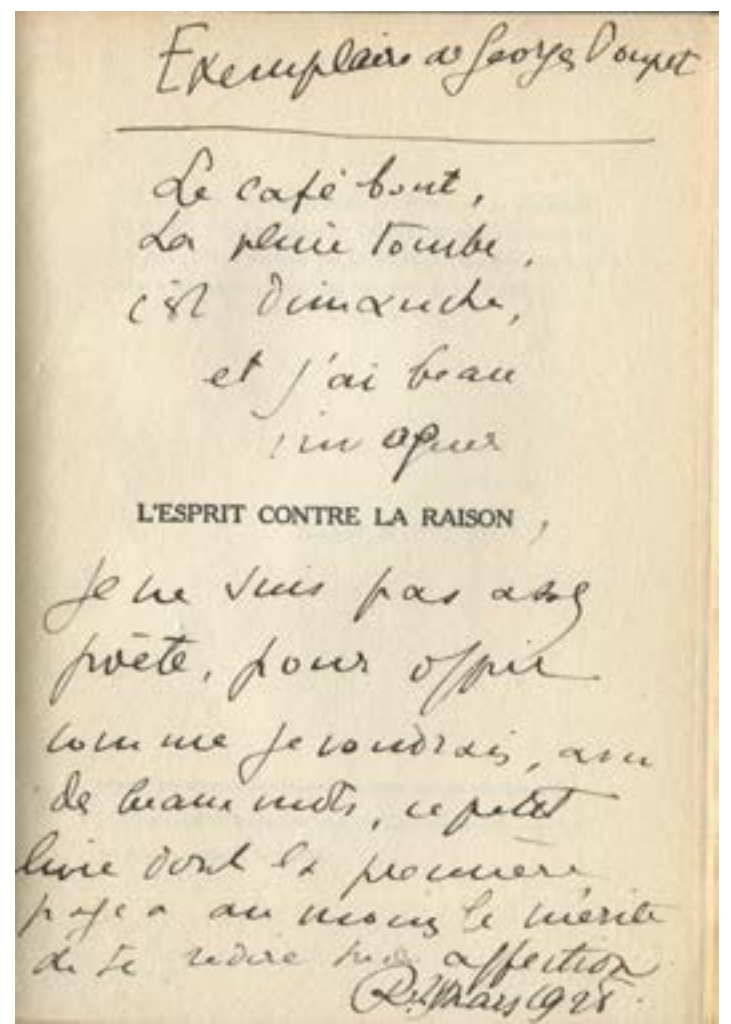 Exemplaire de Georges Poupet
Le café bout,
La pluie tombe,
c'est Dimanche,
et j'ai beau
imaginer
L'ESPRIT CONTRE LA RAISON,
je ne suis pas assez
poète, pour offrir
comme je voudrais, avec
de beaux mots, ce petit
livre dont la première
page a au moins le mérite
de te redire mon affection
Mars 1928.